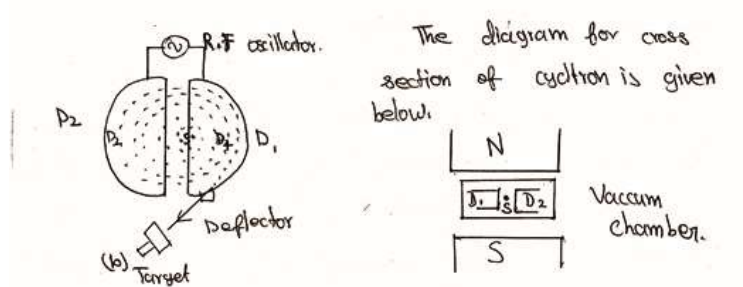 R.F oscillator.
D2
D2
S
D1
D1
Deflector
(b) Target
The diagram for cross
section of cycltron is given
below.
N
D1 S D2
Vaccum
chamber.
S